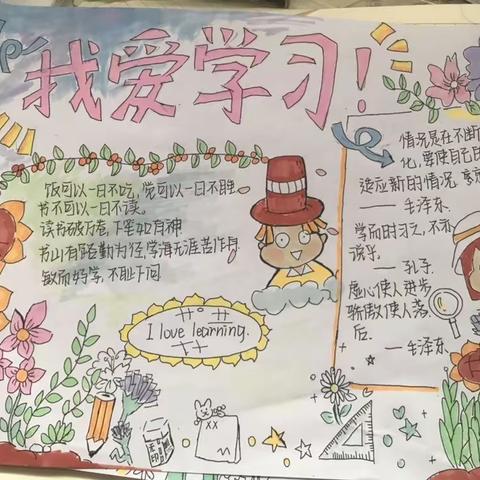 我爱学习!
饭可以一日不吃,觉可以一日不睡
书不可以一日不读。
读书破万卷,下笔如有神
书山有路勤为径,学海无涯苦作舟
敏而好学,不耻下问
I love learning.
情况是在不断
化,要使自己的
适应新的情况,
——毛泽东
学而时习之,不亦
说乎。
——孔子
虚心使人进步
骄傲使人落
后。
——毛泽东
XX